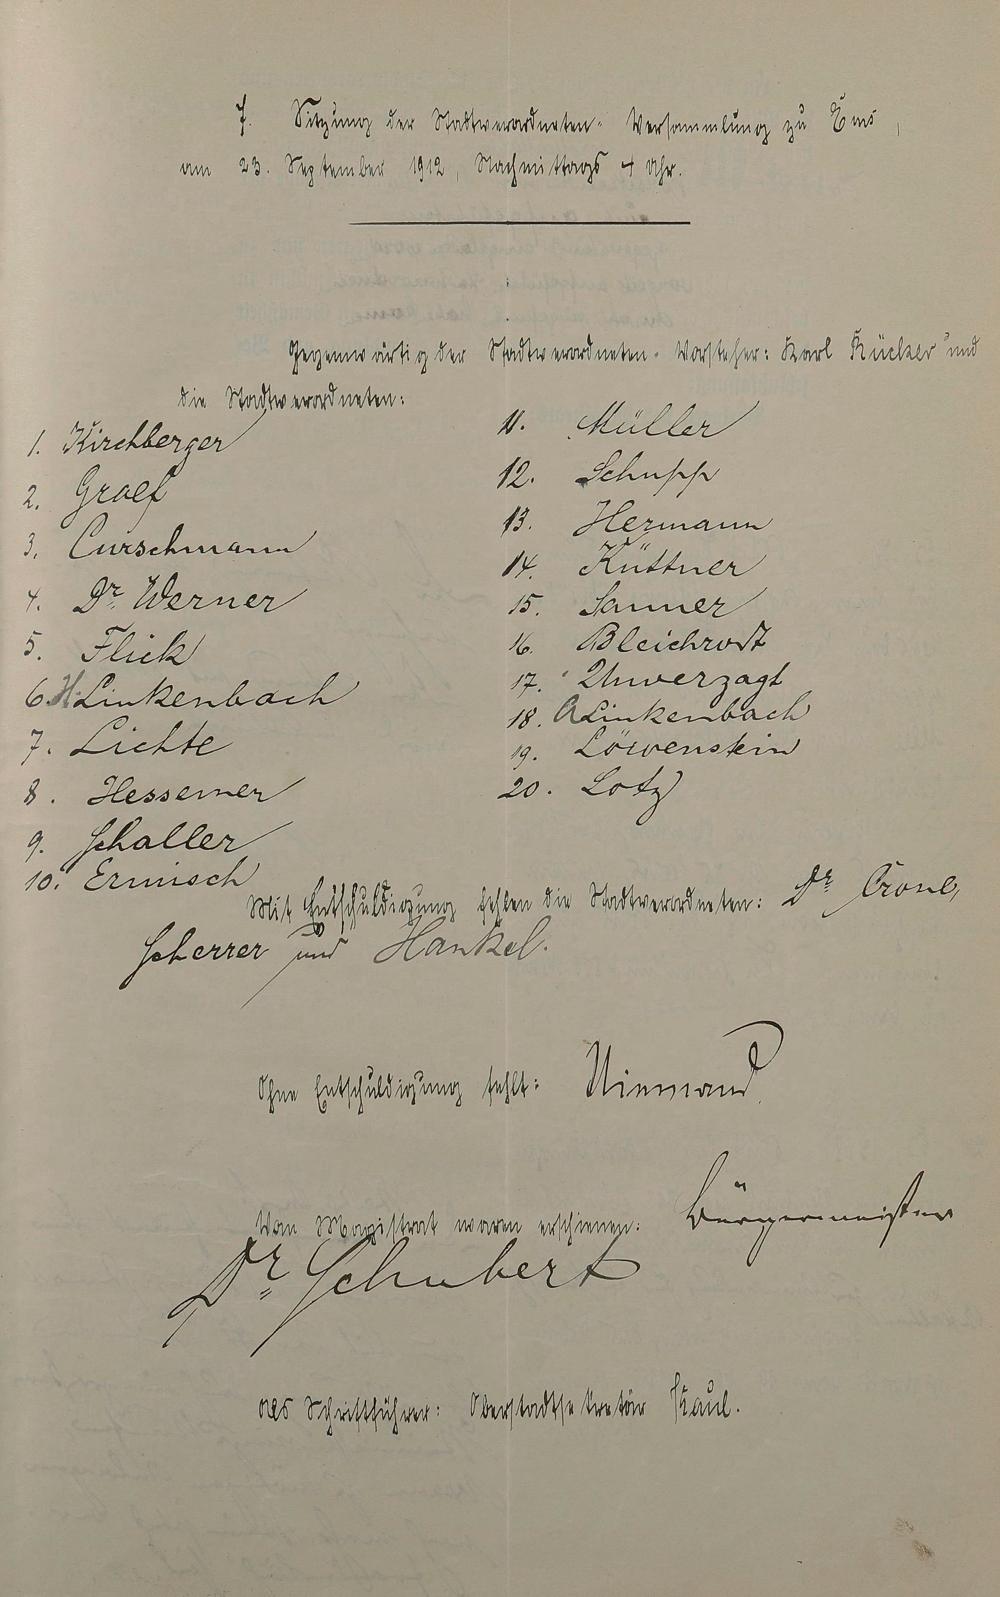 7. Sitzung der Stadtverordneten-Versammlung zu Ems,
am 23. September 1912, Nachmittags 4 Uhr.
Gegenwärtig der Stadtverordneten-Vorsteher: Karl Rücker und
die Stadtverordneten:
1. Kirchberger
2. Graef
3. Curschmann
4. Dr. Werner
5. Flick
6. H. Linkenbach
7. Lichte
8. Hessemer
9. Schaller
10. Ermisch
11. Müller
12. Schupp
13. Hermann
14. Küttner
15. Sanner
16. Bleichrodt
17. Unverzagt
18. A Linkenbach
19. Löwenstein
20. Lotz
Mit Entschuldigung fehlen die Stadtverordneten: Dr. Crone,
Scherrer und Hankel.
Ohne Entschuldigung fehlt: Niemand.
Vom Magistrat waren erschienen: Bürgermeister
Dr. Schubert
als Schriftführer: Oberstadtsekretär Kaul.